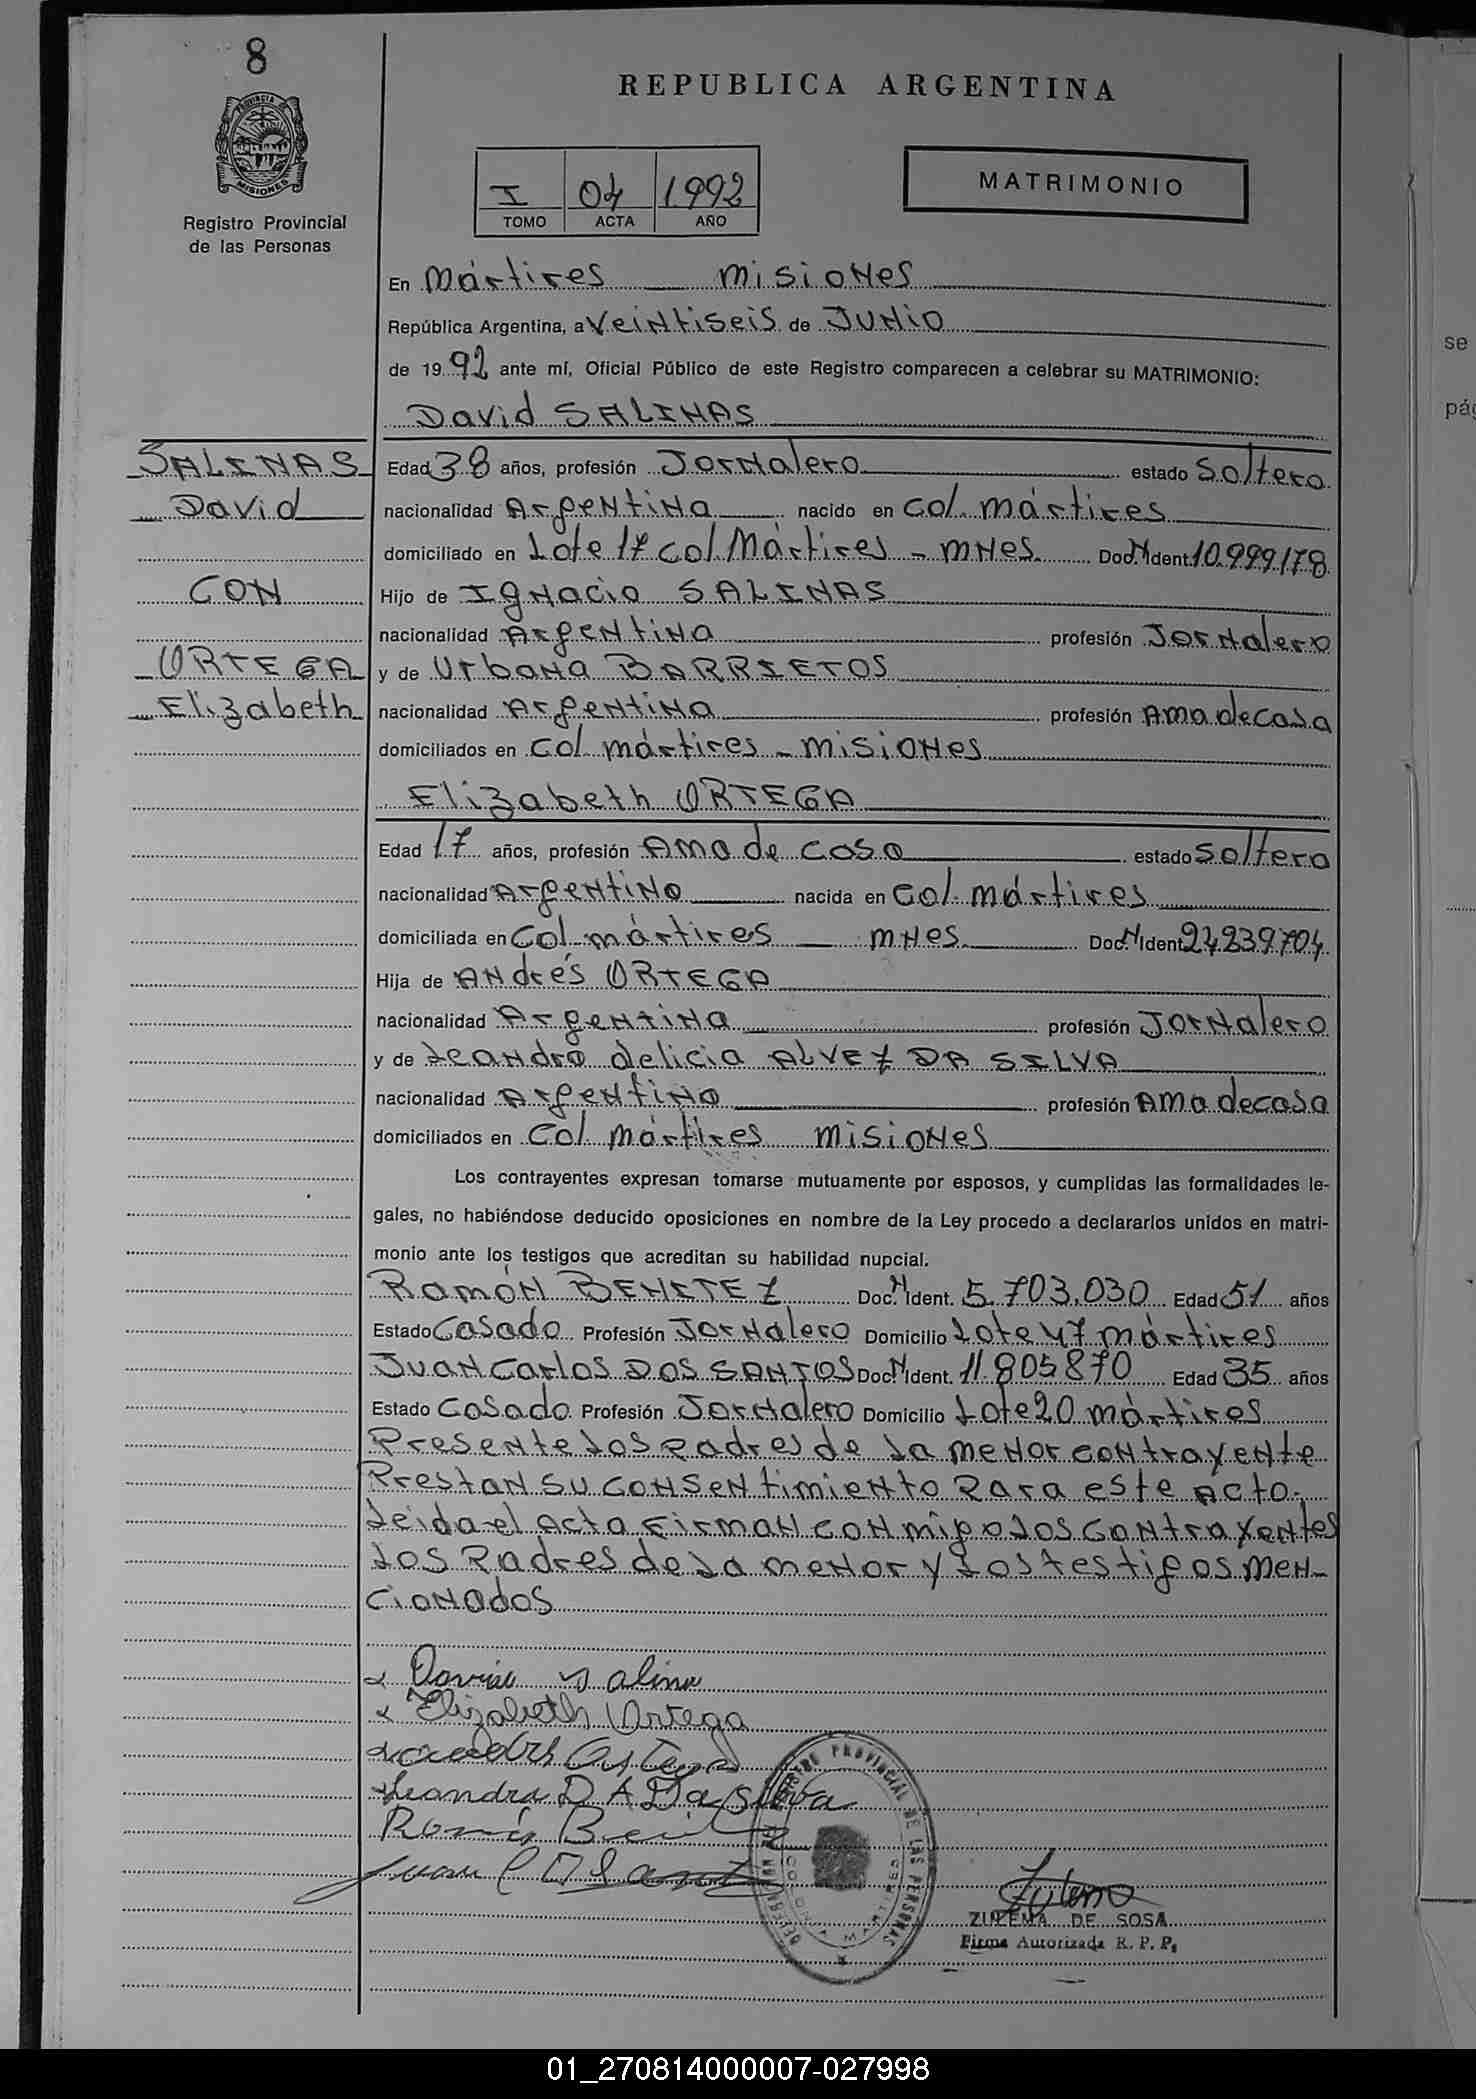 8
PROVINCIA DE
MISIONES
Registro Provincial
de las Personas
REPUBLICA ARGENTINA
I 04 1992
TOMO ACTA AÑO
MATRIMONIO
En Mártires misiones
República Argentina, a Veintiseis de Junio
de 19 92 ante mí, Oficial Público de este Registro comparecen a celebrar su MATRIMONIO:
David SALINAS
SALINAS
David
CON
ORTEGA
Elizabeth
Edad 38 años, profesión Jornalero estado Soltero
nacionalidad Argentina nacido en Col. mártires
domiciliado en Lote 17 Col Mártires - mnes. Doc. N Ident. 10.999.178
Hijo de Ignacio SALINAS
nacionalidad Argentina profesión Jornalero
y de Urbana BARRIETOS
nacionalidad Argentina profesión Ama de casa
domiciliados en Col mártires - misiones
Elizabeth ORTEGA
Edad 17 años, profesión Ama de casa estado Soltera
nacionalidad Argentina nacida en Col. mártires
domiciliada en Col mártires mnes. Doc. N Ident 24.239.704
Hija de Andrés ORTEGA
nacionalidad Argentina profesión Jornalero
y de Leandra delicia ALVEZ DA SILVA
nacionalidad Argentina profesión Ama de casa
domiciliados en Col mártires misiones
Los contrayentes expresan tomarse mutuamente por esposos, y cumplidas las formalidades le-
gales, no habiéndose deducido oposiciones en nombre de la Ley procedo a declararlos unidos en matri-
monio ante los testigos que acreditan su habilidad nupcial.
Ramón BENITEZ Doc. N Ident. 5.703.030 Edad 51 años
Estado Casado Profesión Jornalero Domicilio Lote 47 mártires
Juan Carlos DOS SANTOS Doc. N Ident. 11.805870 Edad 35 años
Estado Casado Profesión Jornalero Domicilio Lote 20 mártires
Presente los Padres de la menor contrayente
Prestan su consentimiento Para este Acto.
Leida el Acta Firman conmigo los contrayentes
los Padres de la menor y los testigos men-
cionados
David Salina
Elizabeth Ortega
Ortega
Leandra D A Da Silva
Ramón
Juan C D Sant
REGISTRO PROVINCIAL DE LAS PERSONAS
DELEGACION
COLONIA MARTIRES
ZULEMA DE SOSA
Firma Autorizada R. P. P.
se
pág
01_270814000007-027998